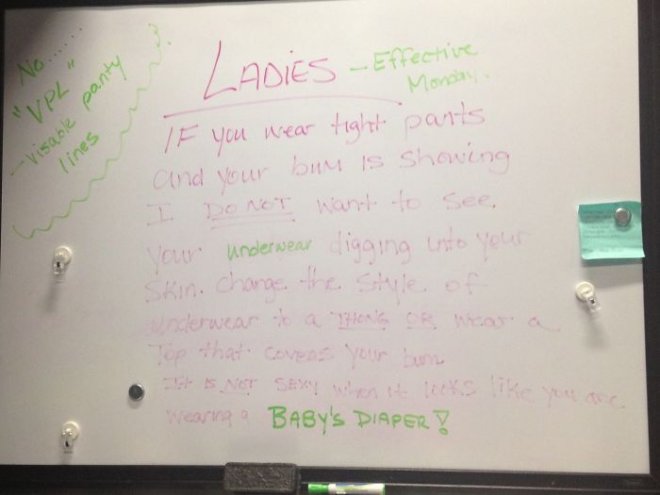 No.......
"VPL"
- visable panty
lines
LADIES - Effective
Monday.
IF you wear tight pants
and your bum is showing
I DO NOT want to see
your underwear digging into your
skin. change the style of
underwear to a THONG OR wear a
Top that covers your bum
It IS NOT SEXY when it looks like you are
wearing a BABY'S DIAPER!